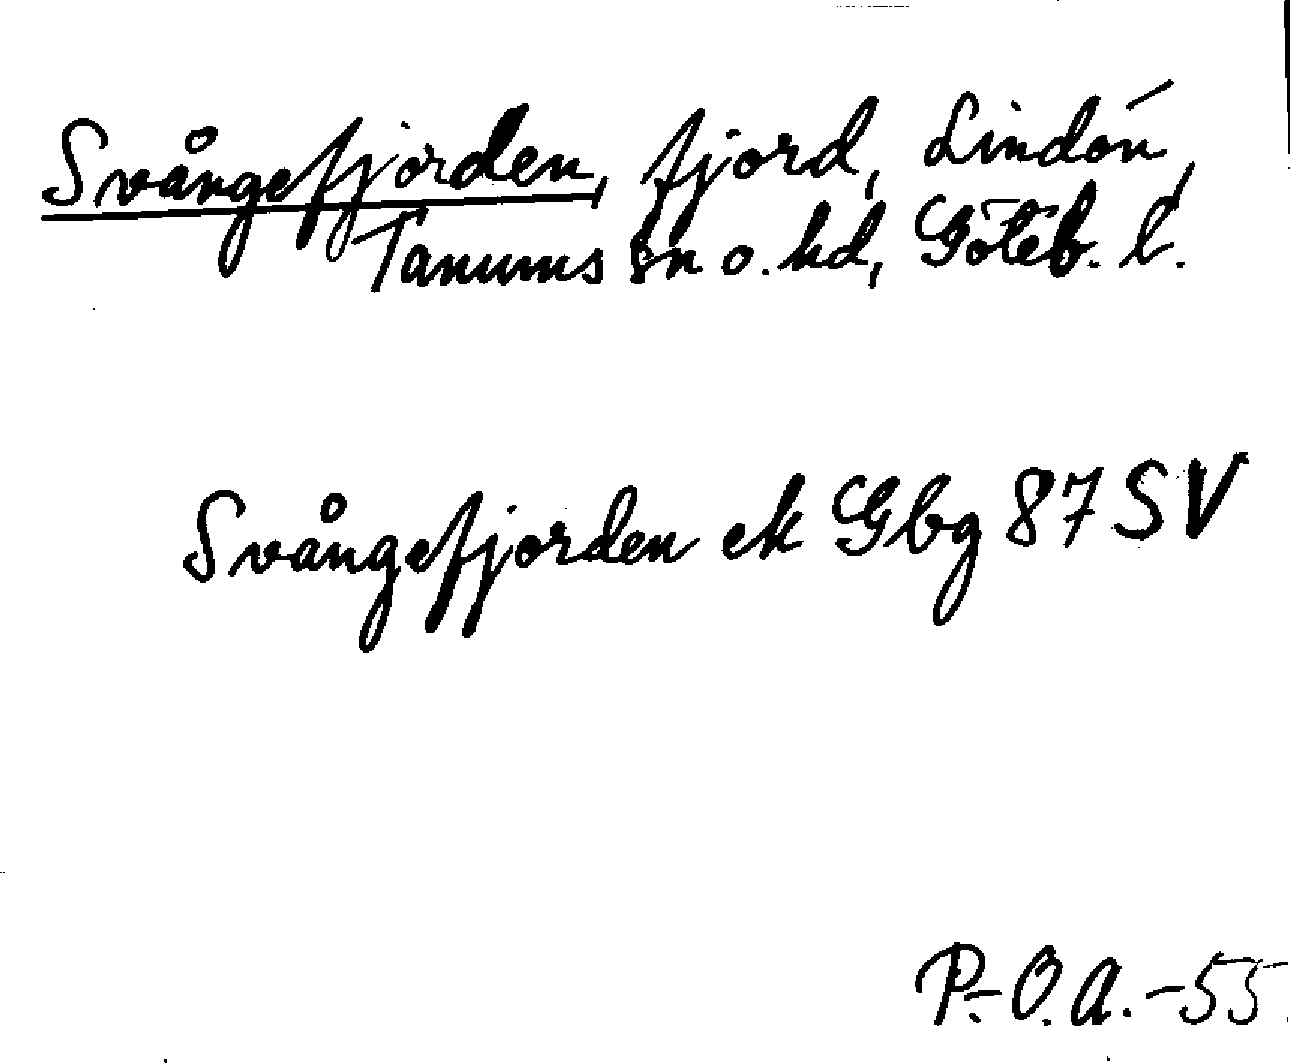 Svångefjorden, fjord, Lindön,
Tanums sn o. hd, Göteb. l.
Svångefjorden ek Gbg 87 SV
P.-O. A. -55.